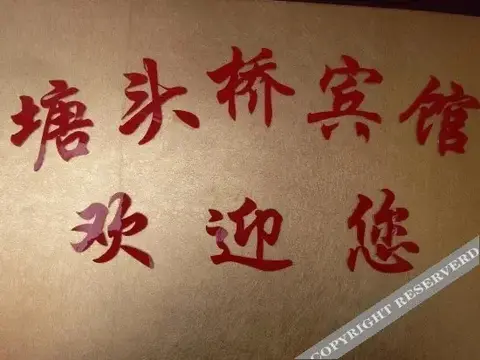 塘头桥宾馆
欢迎您
COPYRIGHT RESERVERD